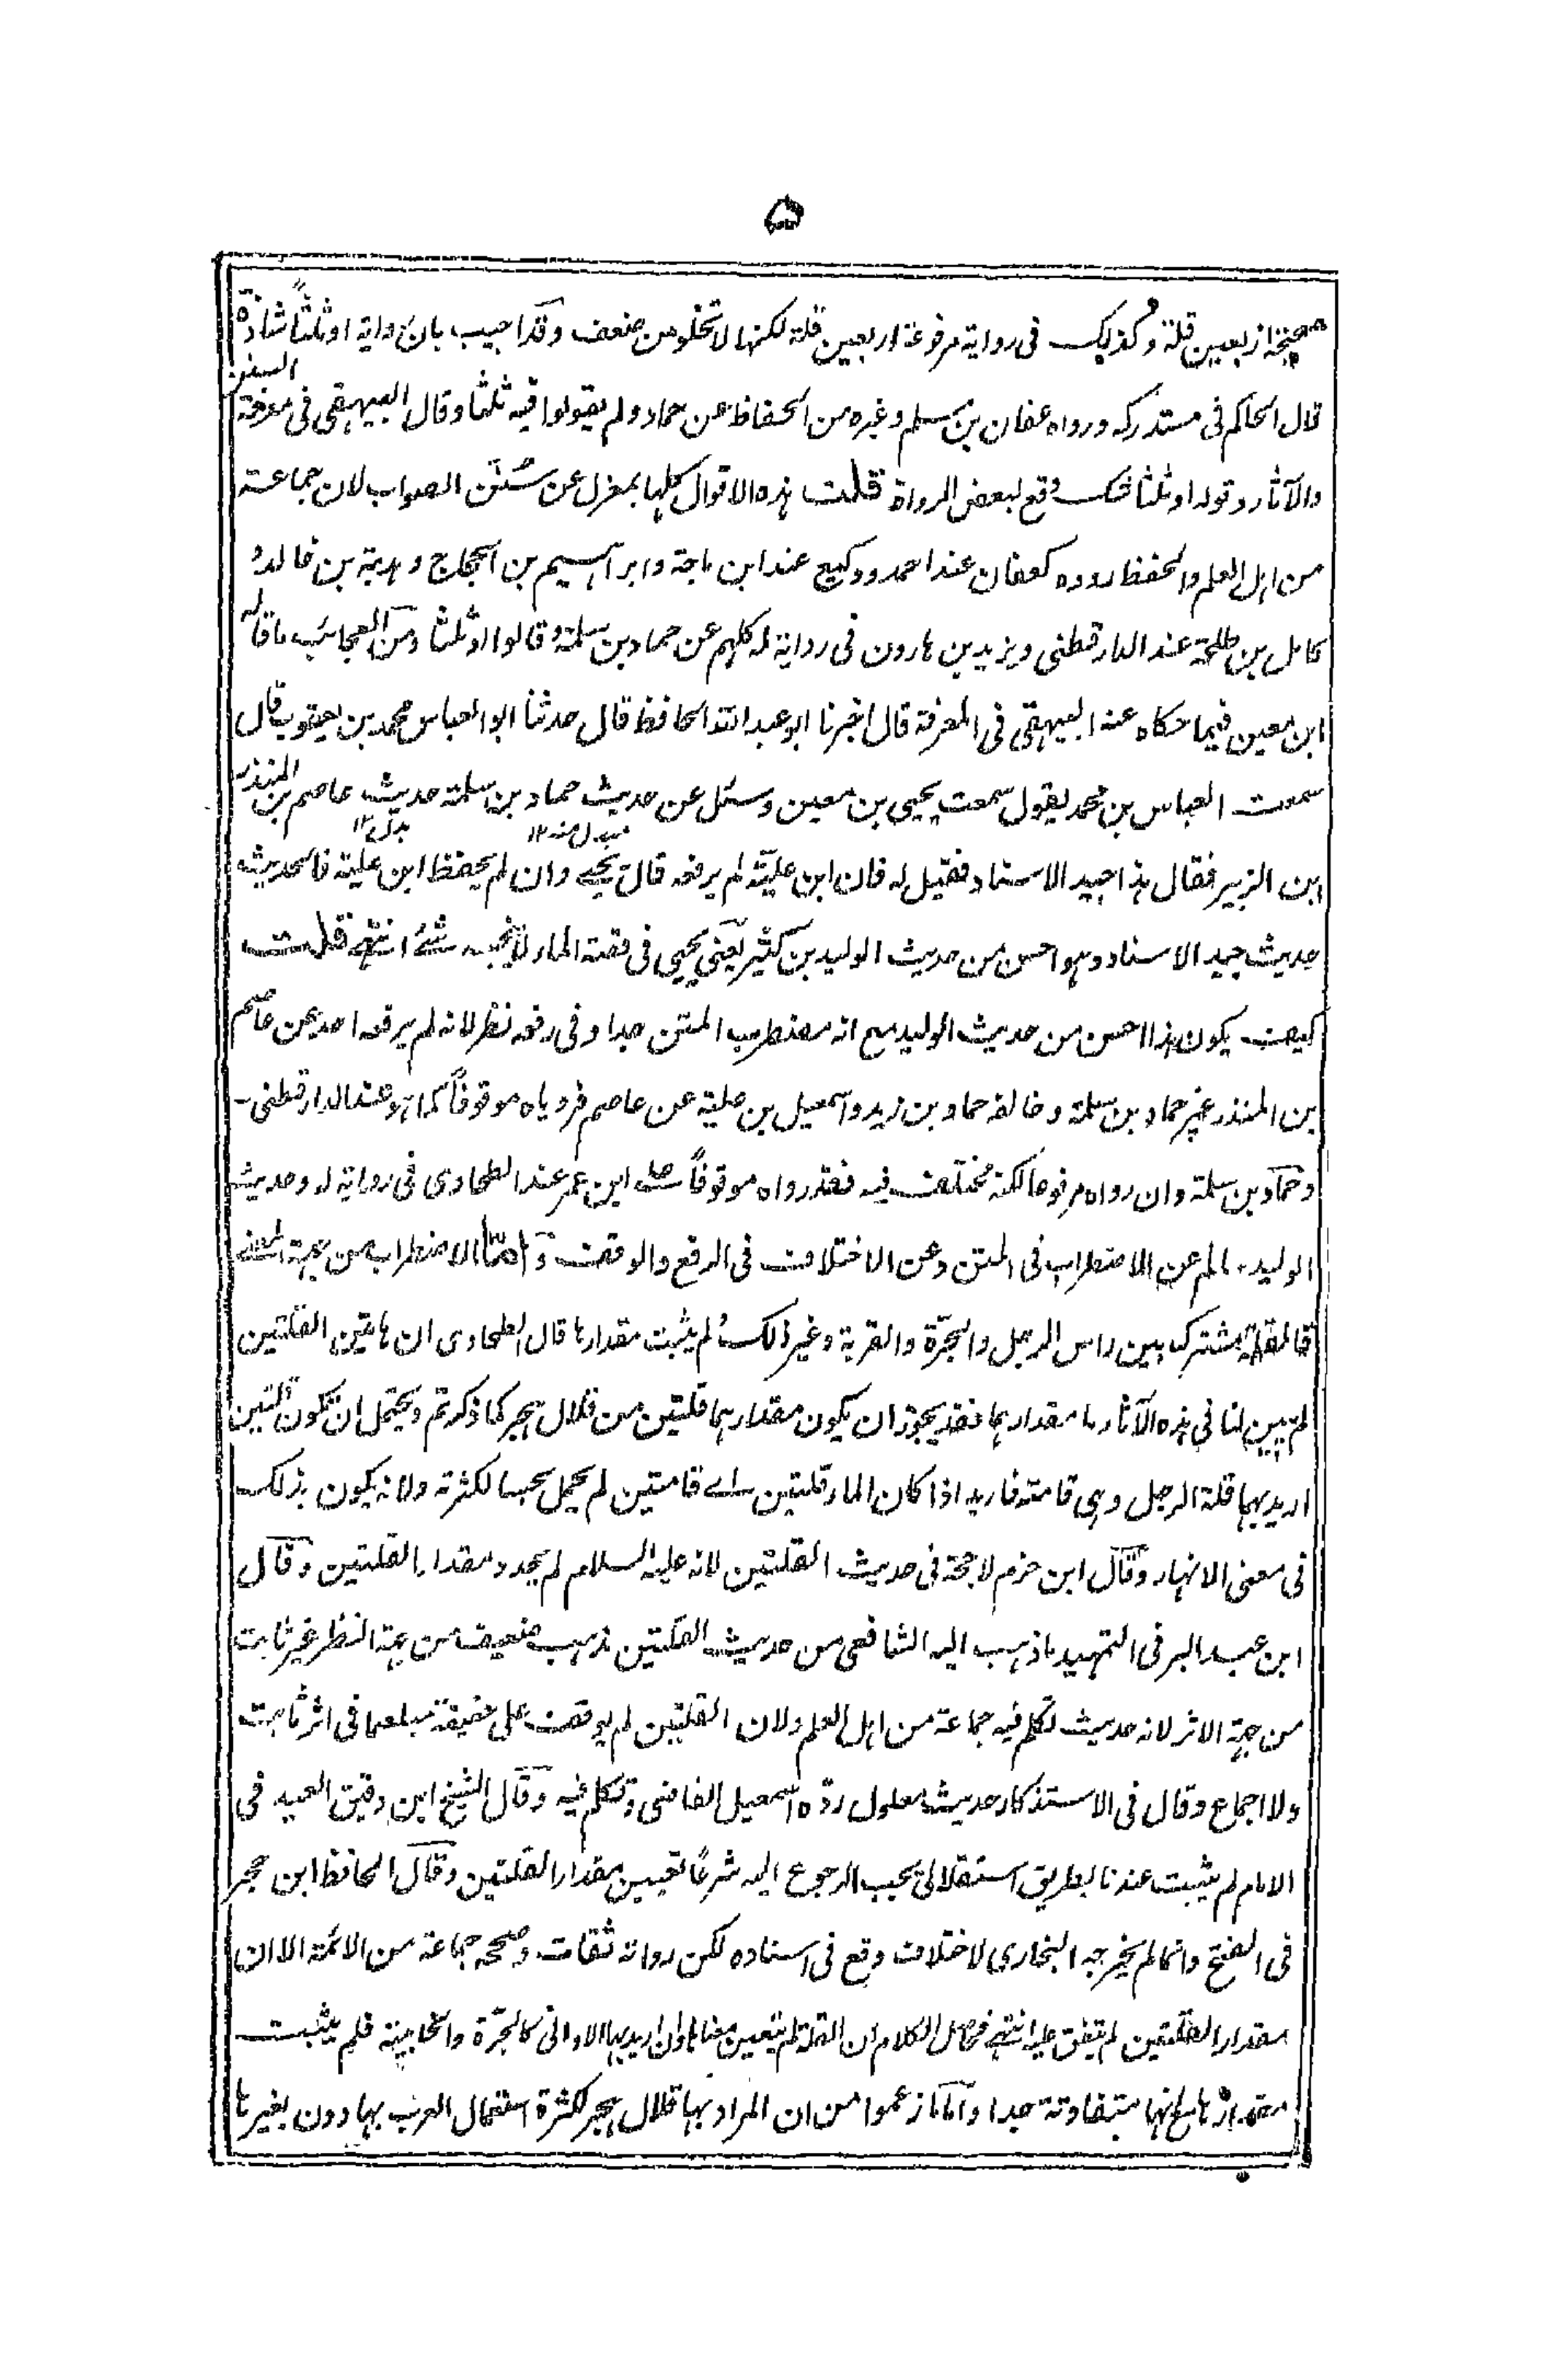 ۵
صحيحة اربعين قلة وكذلك فى رواية مرفوعة اربعين قلة لكنها لا تخلو من ضعف وقد اجيب بان رواية او ثلثاً شاذة
قال الحاكم فى مستدركه ورواه عفان بن مسلم وغيره من الحفاظ عن حماد ولم يقولوا فيه ثلثا وقال البيهقى فى معرفة السنن
والآثار وقوله او ثلثا شك وقع لبعض الرواة قلت هذه الاقوال كلها بمعزل عن سنن الصواب لان جماعة
من اهل العلم والحفظ رووه كعفان عند احمد ووكيع عند ابن ماجة وابراهيم بن الحجاج وهدبة بن خالد و
كامل بن طلحة عند الدارقطنى ويزيد بن هارون فى رواية له كلهم عن حماد بن سلمة وقالوا او ثلثا ومن العجائب ما قاله
ابن معين فيما حكاه عنه البيهقى فى المعرفة قال اخبرنا ابو عبد الله الحافظ قال حدثنا ابو العباس محمد بن يعقوب قال
سمعت العباس بن محمد يقول سمعت يحيى بن معين وسئل عن حديث حماد بن سلمة حديث عاصم بن المنذر
مبدل منه ١٢ بدل ١٢
ابن الزبير فقال هذا جيد الاسناد فقيل له فان ابن علية لم يرفعه قال يحيى وان لم يحفظ ابن علية فالحديث
حديث جيد الاسناد وهو احسن من حديث الوليد بن كثير يعنى يحيى فى قصة الماء لا ينجسه شئ انتهى قلت
كيف يكون هذا احسن من حديث الوليد مع انه مضطرب المتن جدا وفى رفعه نظر لانه لم يرفعه احد عن عاصم
بن المنذر غير حماد بن سلمة وخالفه حماد بن زيد واسمعيل بن علية عن عاصم فروياه موقوفاً كما هو عند الدارقطنى -
وحماد بن سلمة وان رواه مرفوعا لكنه مختلف فيه فقد رواه موقوفاً على ابن عمر عند الطحاوى فى رواية له وحديث
الوليد سالم عن الاضطراب فى المتن وعن الاختلاف فى الرفع والوقف واما الاضطراب من جهة المعنى
فالقلة مشترك بين راس الرجل والجرّة والقربة وغير ذلك ولم يثبت مقدارها قال الطحاوى ان هاتين القلتين
لم يبين لنا فى هذه الآثار ما مقدارهما فقد يجوز ان يكون مقدارهما قلتين من قلال هجر كما ذكرتم ويحتمل ان تكون قلتين
اريد بهما قلة الرجل وهى قامته فاريد اذا كان الماء قلتين اے قامتين لم يحمل نجسا لكثرته ولانه يكون بذلك
فى معنى الانهار وقال ابن حزم لا حجة فى حديث القلتين لانه عليه السلام لم يحدد مقدار القلتين وقال
ابن عبد البر فى التمهيد ما ذهب اليه الشافعى من حديث القلتين مذهب ضعيف من جهة النظر غير ثابت
من جهة الاثر لانه حديث تكلم فيه جماعة من اهل العلم ولان القلتين لم يوقف على حقيقة مبلغهما فى اثر ثابت
ولا اجماع وقال فى الاستذكار حديث معلول ردّه اسمعيل القاضى وتكلم فيه وقال الشيخ ابن دقيق العيد فى
الامام لم يثبت عندنا بطريق استقلالى يجب الرجوع اليه شرعًا تعيين مقدار القلتين وقال الحافظ ابن حجر
فى الفتح وانما لم يخرجه البخارى لاختلاف وقع فى اسناده لكن رواته ثقات وصححه جماعة من الائمة الا ان
مقدار القلتين لم يتفق عليه انتهى فحاصل الكلام ان القلة لم يتعين معناها وان اريد بها الاوانى كالجرّة والخابية فلم يثبت
مقدارها مع انها متفاوتة جدا واما ما زعموا من ان المراد بها قلال هجر لكثرة استعمال العرب بها دون غيرها